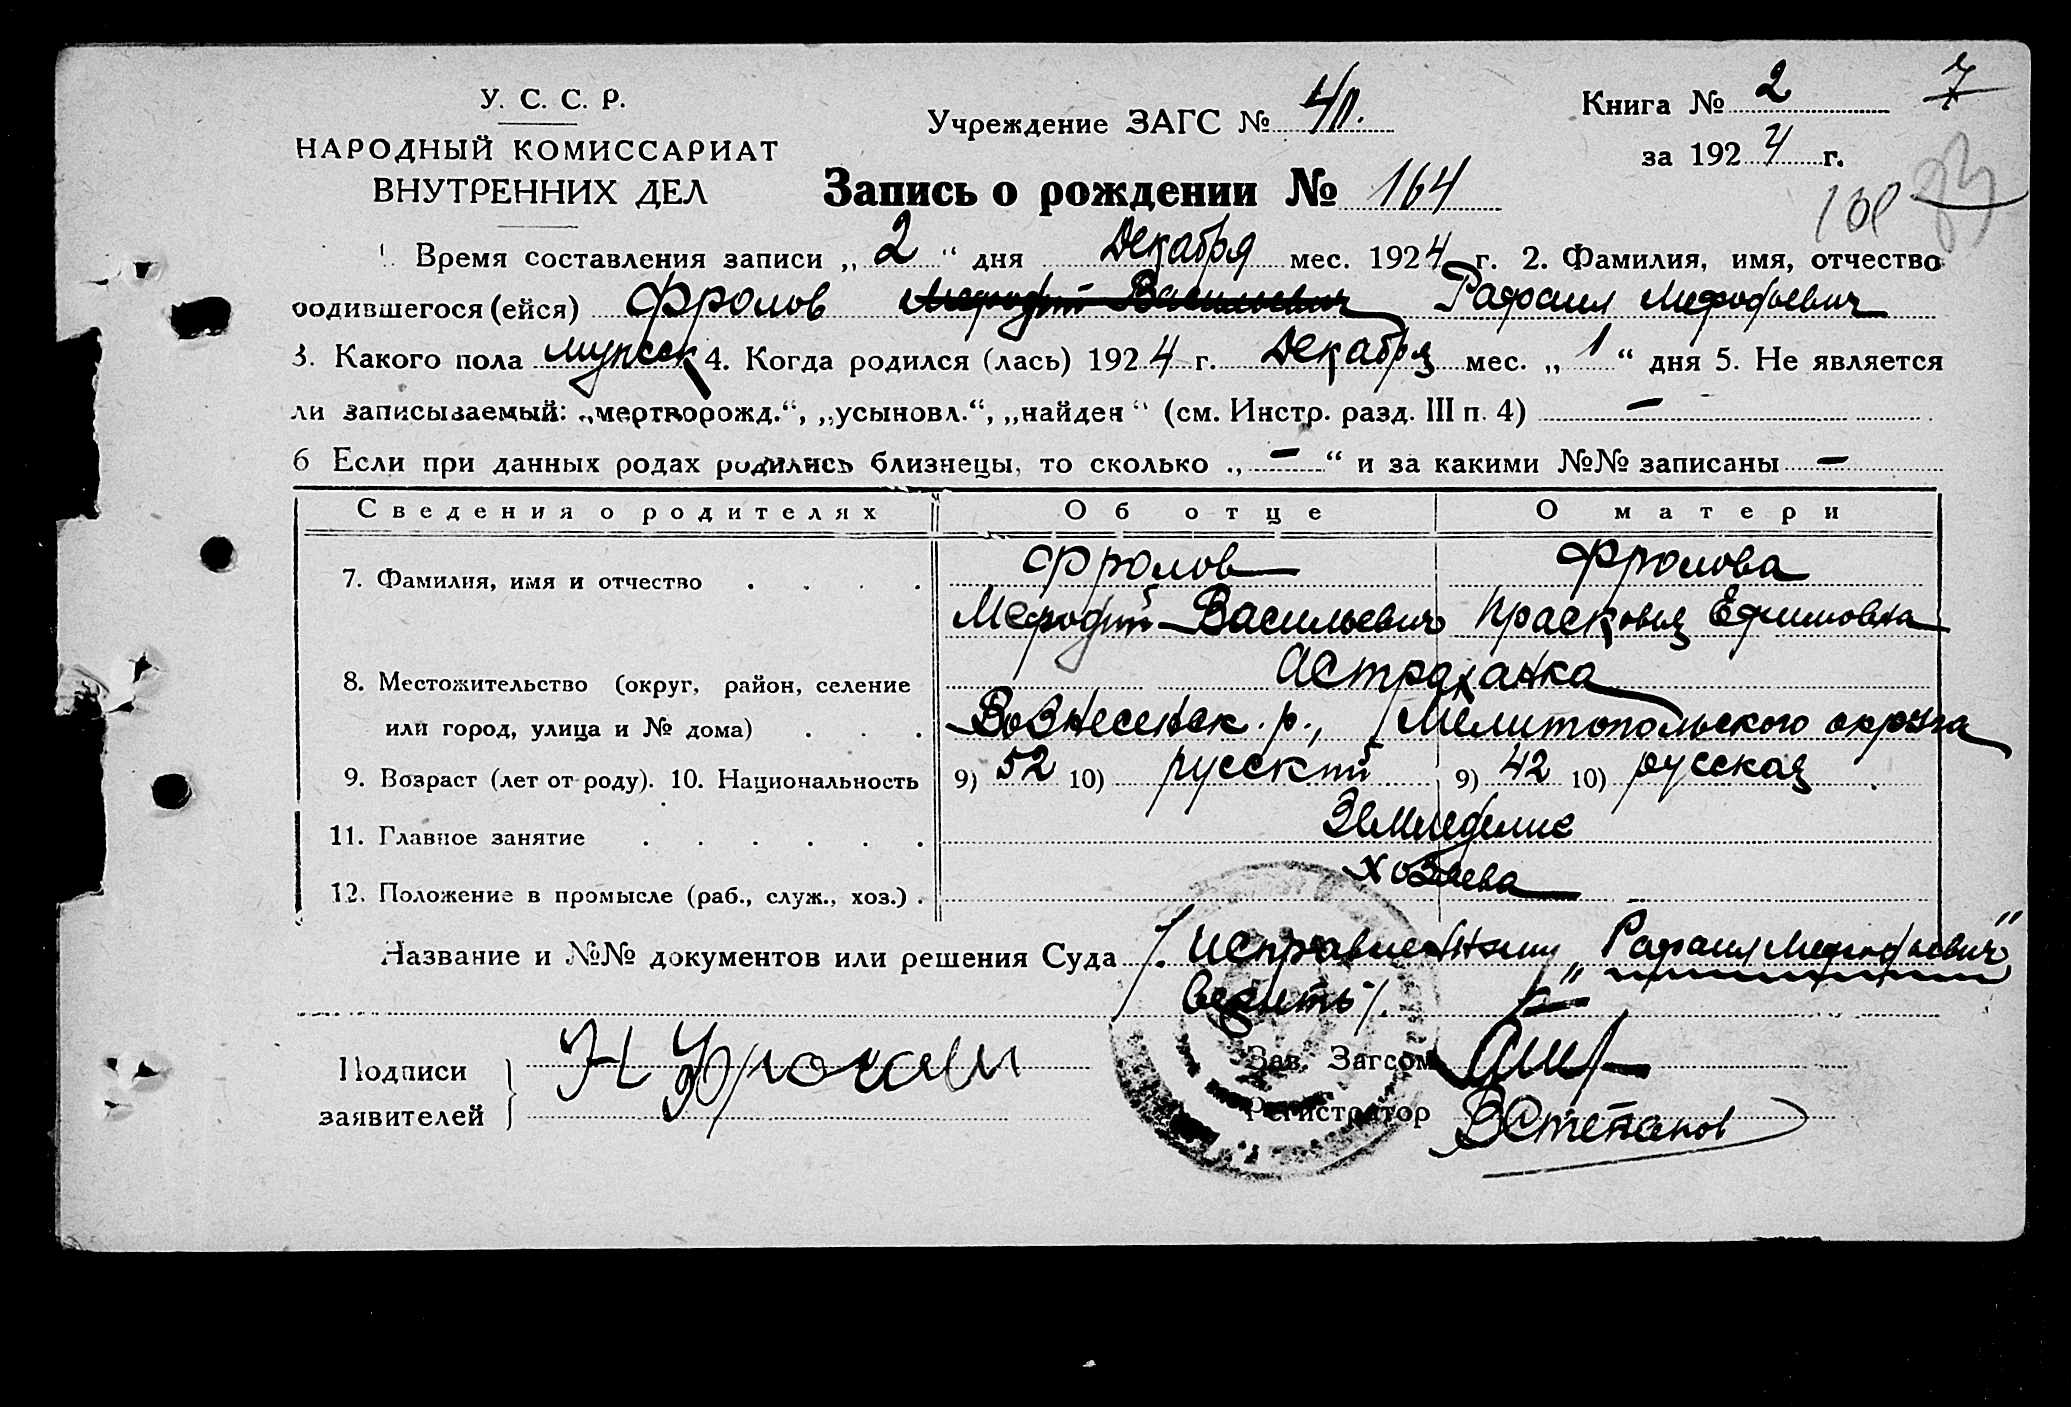 У. С. С. Р.
НАРОДНЫЙ КОМИССАРИАТ
ВНУТРЕННИХ ДЕЛ
Учреждение ЗАГС №
Книга № 2
7
за 1924 г.
Запись о рождении № 164
1. Время составления записи „2“ дня Декабря мес. 1924 г. 2. Фамилия, имя, отчество
родившегося (ейся) Фролов Мефодий Васильевич Рафаил Мефодьевич
3. Какого пола мужск 4. Когда родился (лась) 1924 г. Декабря мес. „1“ дня 5. Не является
ли записываемый: „мертворожд.“, „усыновл.“, „найден“ (см. Инстр. разд. III п. 4) —
6 Если при данных родах родились близнецы, то сколько „—“ и за какими №№ записаны —
Сведения о родителях Об отце О матери
7. Фамилия, имя и отчество . . . . Фролов Фролова
Мефодий Васильевич Прасковья Ефимовна
8. Местожительство (округ, район, селение Астраханка
или город, улица и № дома) . . . Вознесенск. р., Мелитопольского округа
9. Возраст (лет от роду). 10. Национальность 9) 52 10) русский 9) 42 10) русская
11. Главное занятие . . . . . . Земледелие
12. Положение в промысле (раб., служ., хоз.) . хозяева
Название и №№ документов или решения Суда /. Исправленному „Рафаил Мефодьевич“
верить /.
Подписи
заявителей
Зав. Загсом
Регистратор ВСтепанов